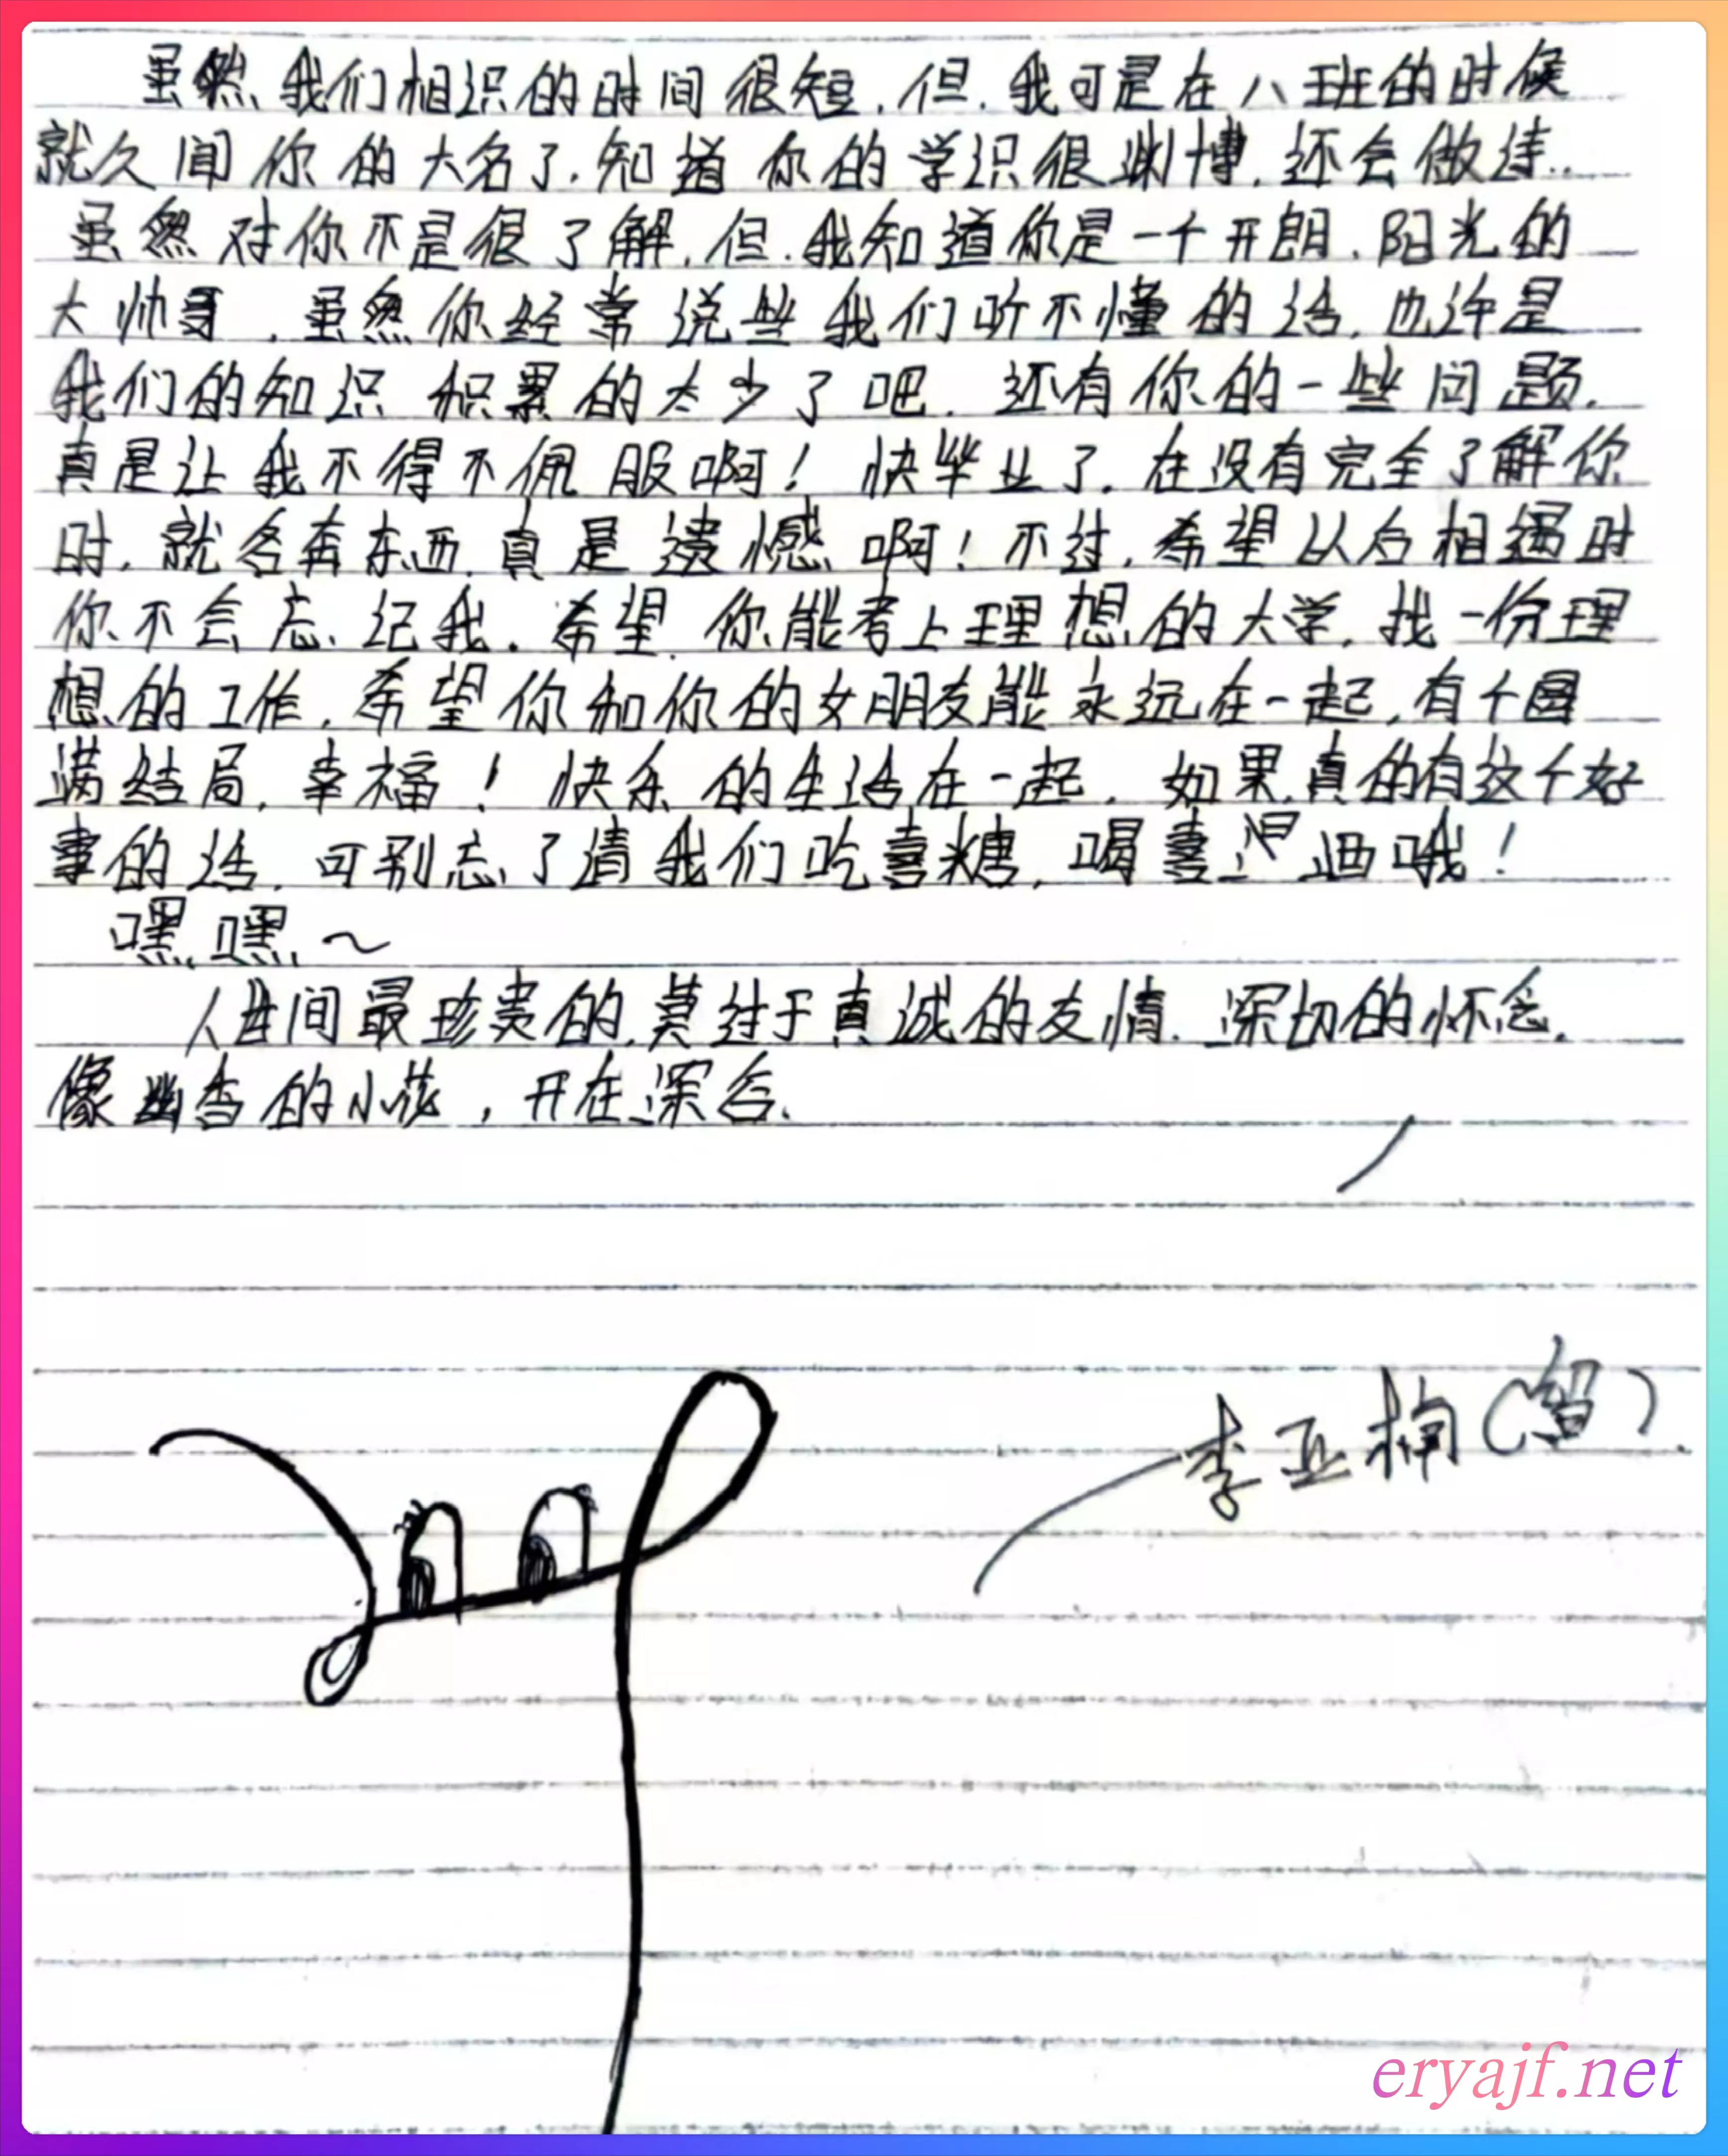 虽然我们相识的时间很短,但,我可是在八班的时候
就久闻你的大名了.知道你的学识很渊博,还会做诗..
虽然对你不是很了解,但.我知道你是一个开朗、阳光的
大帅哥,虽然你经常说些我们听不懂的话,也许是
我们的知识积累的太少了吧.还有你的一些问题.
真是让我不得不佩服啊!快毕业了.在没有完全了解你
时,就各奔东西.真是遗憾啊!不过,希望以后相遇时
你不会忘记我.希望你能考上理想的大学,找一份理
想的工作,希望你和你的女朋友能永远在一起,有个圆
满结局,幸福!快乐的生活在一起.如果真的有这个好
事的话,可别忘了请我们吃喜糖,喝喜酒哦!
嘿嘿~
人世间最珍贵的,莫过于真诚的友情.深切的怀念.
像幽香的小花,开在深谷.
李亚楠(留).
eryajf.net